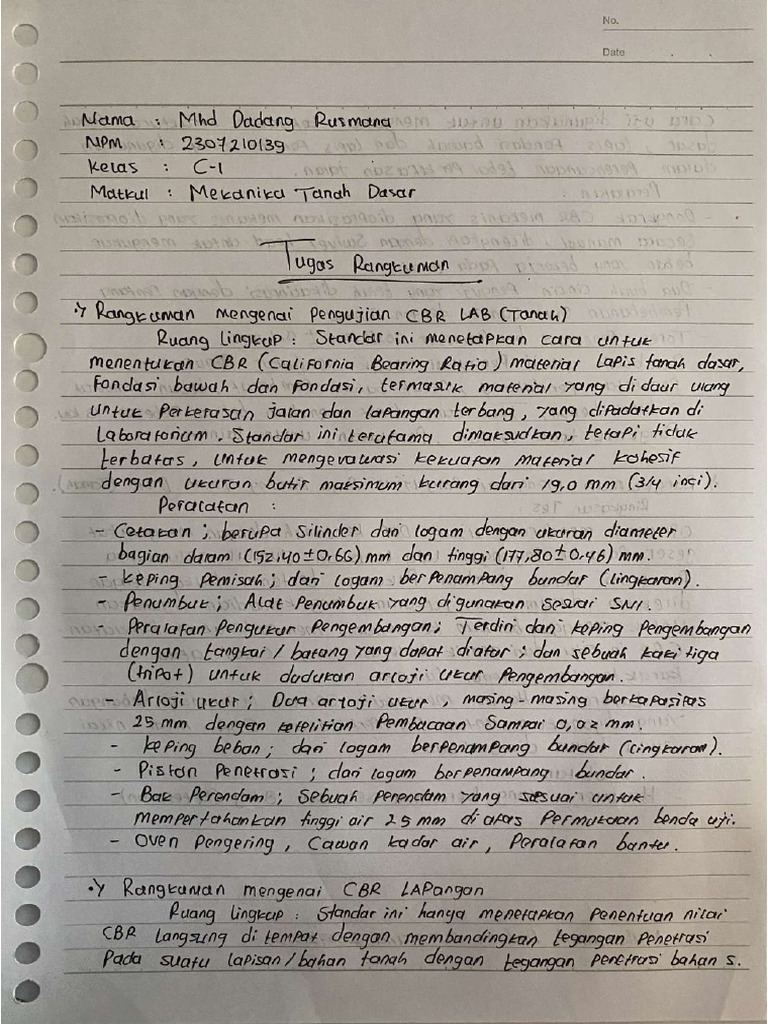 No.
Date . .
Nama : Mhd Dadang Rusmana
NPM : 2307210139
Kelas : C-1
Matkul : Mekanika Tanah Dasar
Tugas Rangkuman
Rangkuman mengenai Pengujian CBR LAB (Tanah)
Ruang lingkup : Standar ini menetapkan cara untuk
menentukan CBR (California Bearing Ratio) material lapis tanah dasar,
Fondasi bawah dan Fondasi, termasuk material yang di daur ulang
untuk Perkerasan jalan dan lapangan terbang, yang dipadatkan di
Laboratorium. Standar ini terutama dimaksudkan, tetapi tidak
terbatas, untuk mengevaluasi kekuatan material kohesif
dengan ukuran butir maksimum kurang dari 19,0 mm (3/4 inci).
Peralatan :
- Cetakan ; berupa silinder dari logam dengan ukuran diameter
bagian dalam (152,40±0,66) mm dan tinggi (177,80±0,46) mm.
- Keping Pemisah ; dari logam berpenampang bundar (lingkaran).
- Penumbuk ; Alat Penumbuk yang digunakan sesuai SNI.
- Peralatan Pengukur Pengembangan; Terdiri dari keping Pengembangan
dengan tangkai / batang yang dapat diatur ; dan sebuah kaki tiga
(tripot) untuk dudukan arloji ukur Pengembangan.
- Arloji ukur ; Dua arloji ukur, masing-masing berkapasitas
25 mm dengan ketelitian Pembacaan Sampai 0,02 mm.
- keping beban ; dari logam berpenampang bundar (lingkaran).
- Piston Penetrasi ; dari logam berpenampang bundar.
- Bak Perendam ; Sebuah perendam yang sesuai untuk
mempertahankan tinggi air 25 mm di atas Permukaan benda uji.
- Oven Pengering, Cawan kadar air, Peralatan bantu.
Rangkuman mengenai CBR LAPangan
Ruang lingkup : Standar ini hanya menetapkan Penentuan nilai
CBR langsung di tempat dengan membandingkan tegangan Penetrasi
Pada suatu lapisan/bahan tanah dengan tegangan penetrasi bahan s.